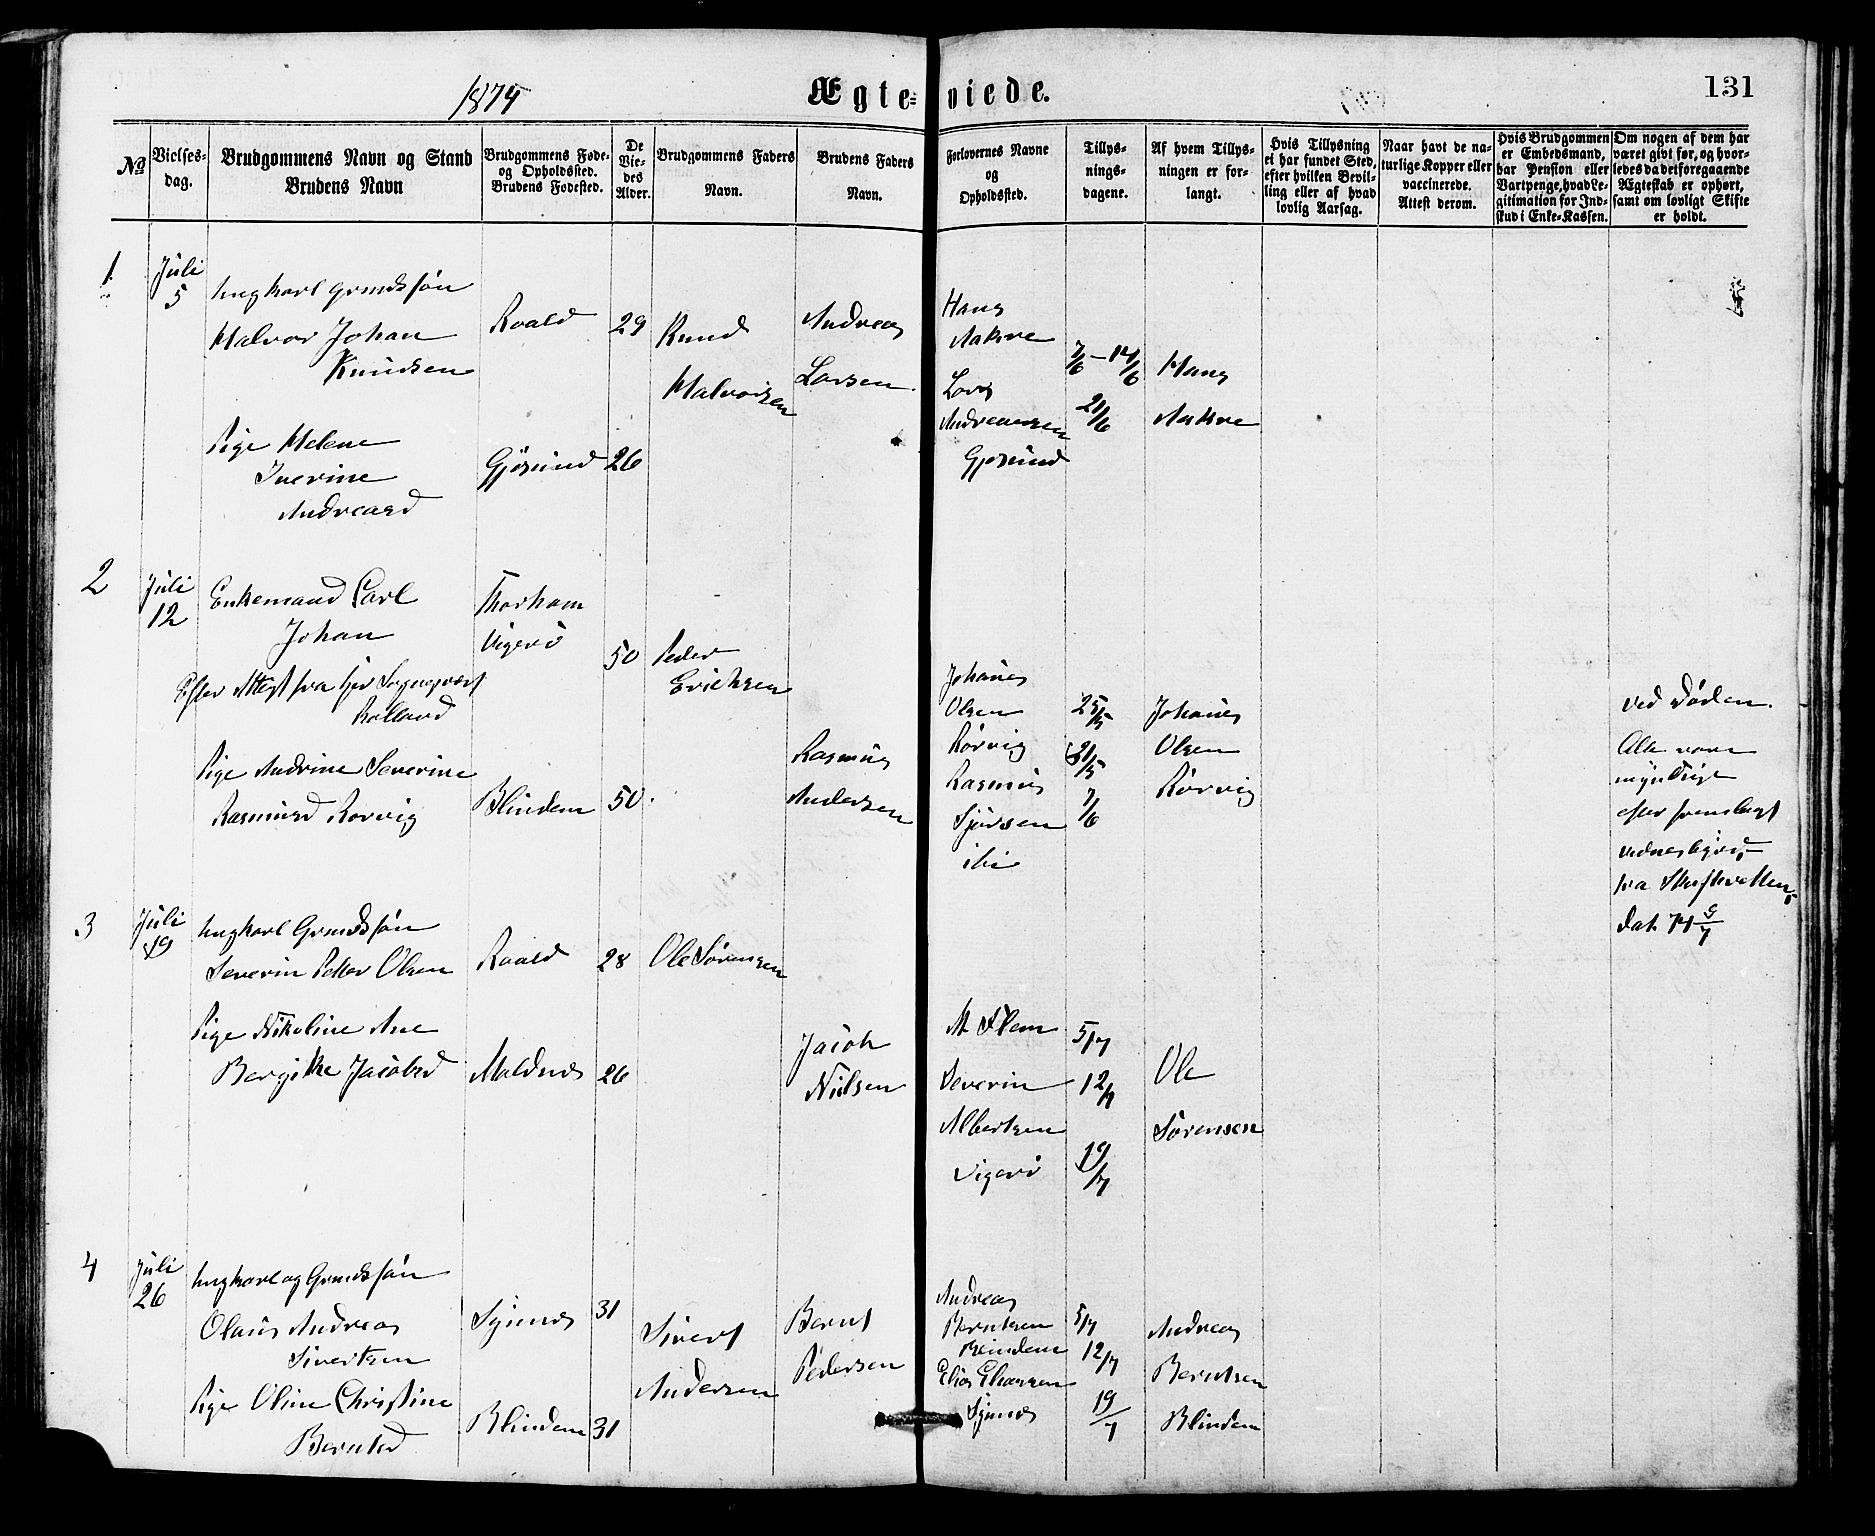 1874
Ægte-viede.
131
No
Vielses-
dag.
Brudgommens Navn og Stand
Brudens Navn
Brudgommens Føde-
og Opholdssted.
Brudens Fødested.
De
Vie-
des
Alder.
Brudgommens Faders
Navn.
Brudens Faders
Navn.
Forlovernes Navne
og
Opholdssted.
Tillys-
nings-
dagene.
Af hvem Tillys-
ningen er for-
langt.
Hvis Tillysning
ei har fundet Sted,
efter hvilken Bevil-
ling eller af hvad
lovlig Aarsag.
Naar havt de na-
turlige Kopper eller
vaccinerede.
Attest derom.
Hvis Brudgommen
er Embedsmand,
har Pension eller
Vartpenge, hvad Le-
gitimation for Ind-
skud i Enke-Kassen.
Om nogen af dem har
været givt før, og hvor-
ledes da det foregaaende
Ægteskab er ophørt,
samt om lovligt Skifte
er holdt.
1
Juli
5
Ungkarl Grmdssøn
Halvor Johan
Knudsen
Roald
29
Knud
Halvorsen
Andreas
Larsen
Hans
Aakvre
Lars
Andreassen
Gjøsund
7/6 - 14/6
21/6
Hans
Aakvre
Pige Helene
Iverine
Andreasd
Gjøsund
26
2
Juli
12
Enkemand Carl
Johan
Efter Attest fra
Rolland
Thorham
Vigerø
50
Peder
Erichsen
Pige Andrine Severine
Rasmusd Rørvig
Blindem
50
Rasmus
Andersen
Johanes
Olsen
Rørvig
Rasmus
Sjursen
ibi
25/5
31/5
7/6
Johanes
Olsen
Rørvig
ved Døden.
Alle vare
myndige
efter fremlagt
fra Skifteretten
dat. 74
3
Juli
19
Ungkarl Grmdssøn
Severin Petter Olsen
Roald
28
Ole Sørensen
Pige Nikoline Ane
Bergitte Jacobsd
Moldnes
26
Jacob
Nilsen
M Flem
Severin
Albertsen
Vigerø
5/7
12/7
19/7
Ole
Sørensen
4
Juli
26
Ungkarl og Grmdssøn
Olaus Andreas
Sivertsen
Synnes
31
Sivert
Andersen
Bernt
Pedersen
Andreas
Berntsen
Blindem
Elias Eliassen
Synnes
5/7
12/7
19/7
Andreas
Berntsen
Blindem
Pige Oline Christine
Berntsd
Blindem
31